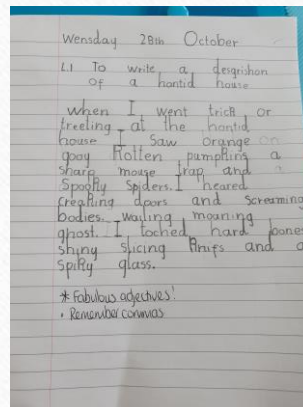 Wensday 28th October
L1 To write a desgrishon
of a hontid house
when I went trick or
treeting at the hontid
house I Saw orange
gooy Rotten pumpkins a
sharp mouse trap and
Spooky Spiders. I heared
creaking doors and screaming
bodies. wailing moaning
ghost. I toched hard bones
shiny slicing knifs and a
spiky glass.
* Fabulous adjectives!
• Remember commas